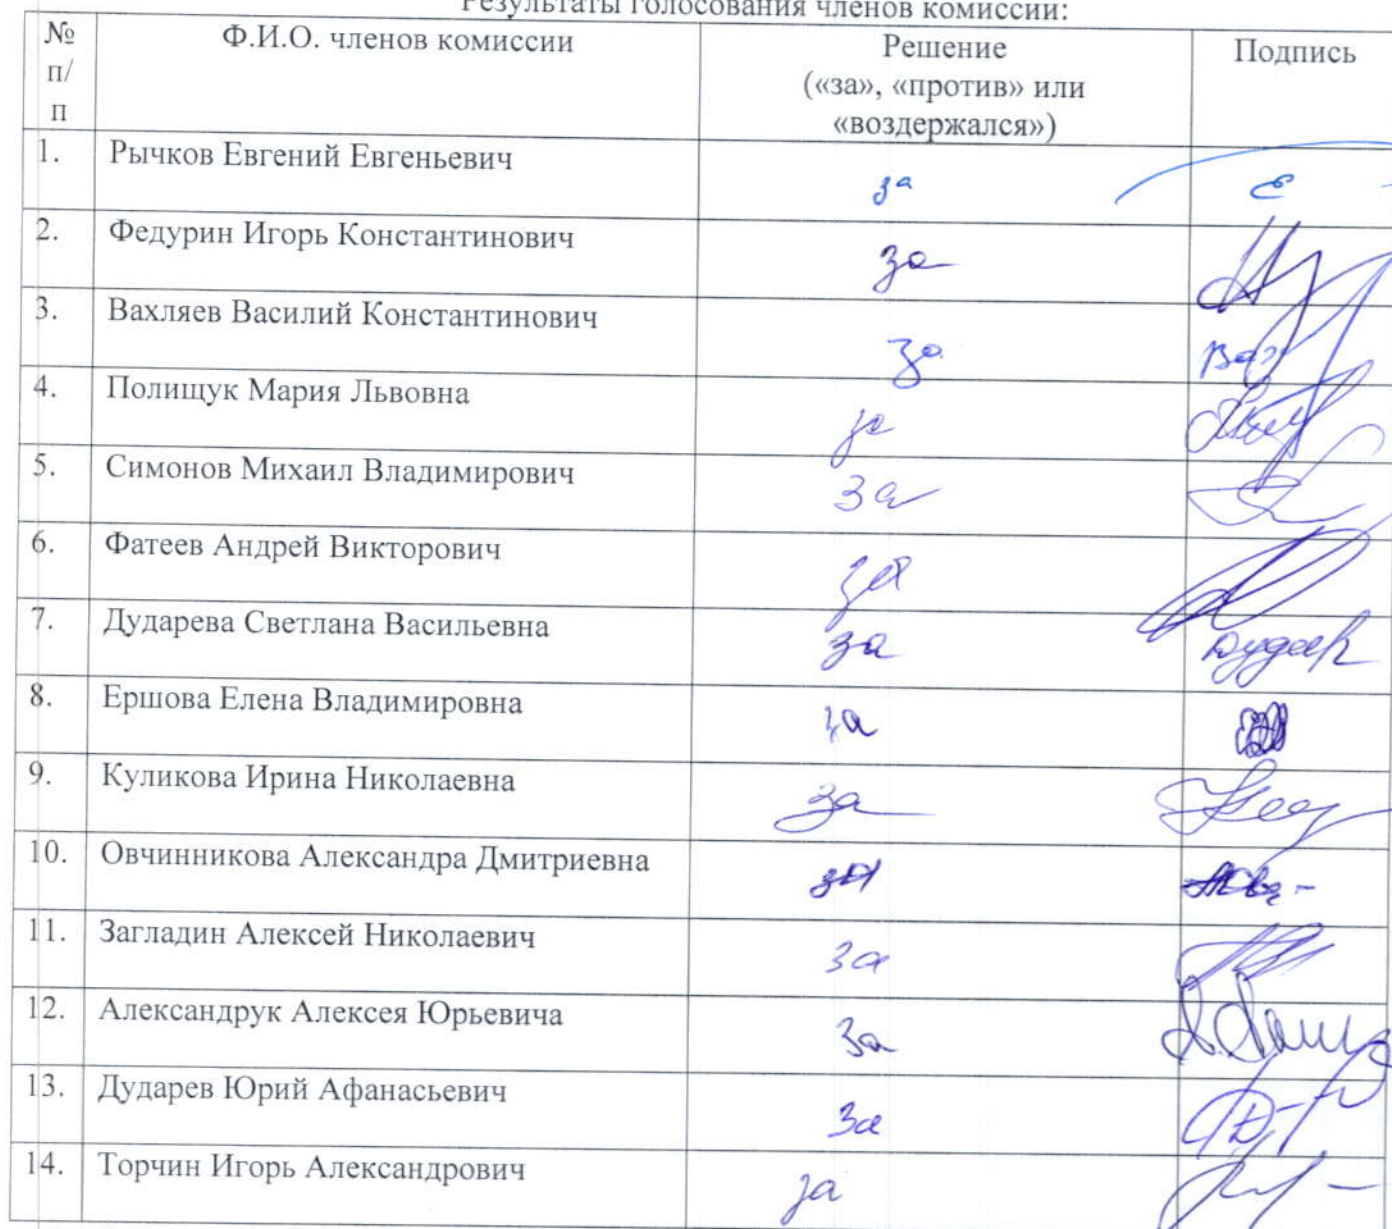 Результаты голосования членов комиссии:
№ п/п Ф.И.О. членов комиссии Решение («за», «против» или «воздержался») Подпись
1. Рычков Евгений Евгеньевич за
2. Федурин Игорь Константинович за
3. Вахляев Василий Константинович за
4. Полищук Мария Львовна за
5. Симонов Михаил Владимирович за
6. Фатеев Андрей Викторович за
7. Дударева Светлана Васильевна за
8. Ершова Елена Владимировна за
9. Куликова Ирина Николаевна за
10. Овчинникова Александра Дмитриевна за
11. Загладин Алексей Николаевич за
12. Александрук Алексея Юрьевича за
13. Дударев Юрий Афанасьевич за
14. Торчин Игорь Александрович за